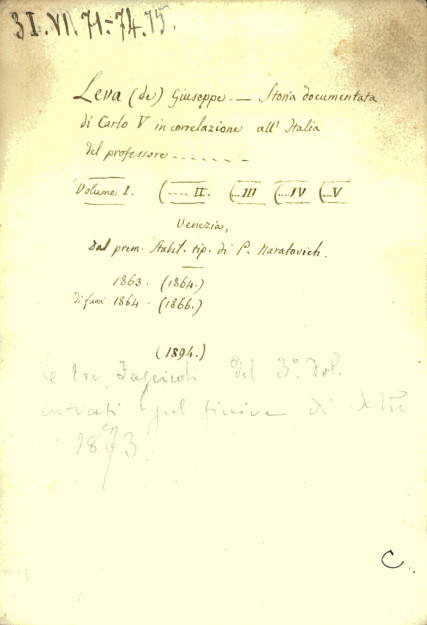 3I.VI.71-74.75.
Leva (de) Giuseppe. — Storia documentata
di Carlo V in correlazione all' Italia
del professore . . . . . . .
Volume I. (.... II. (...III (...IV (...V
Venezia,
Dal prem. Stabil. tip. di P. Naratovich.
1863. (1864.)
di fuori 1864. (1866.)
(1894.)
3º. Vol.
di
1873.
C.